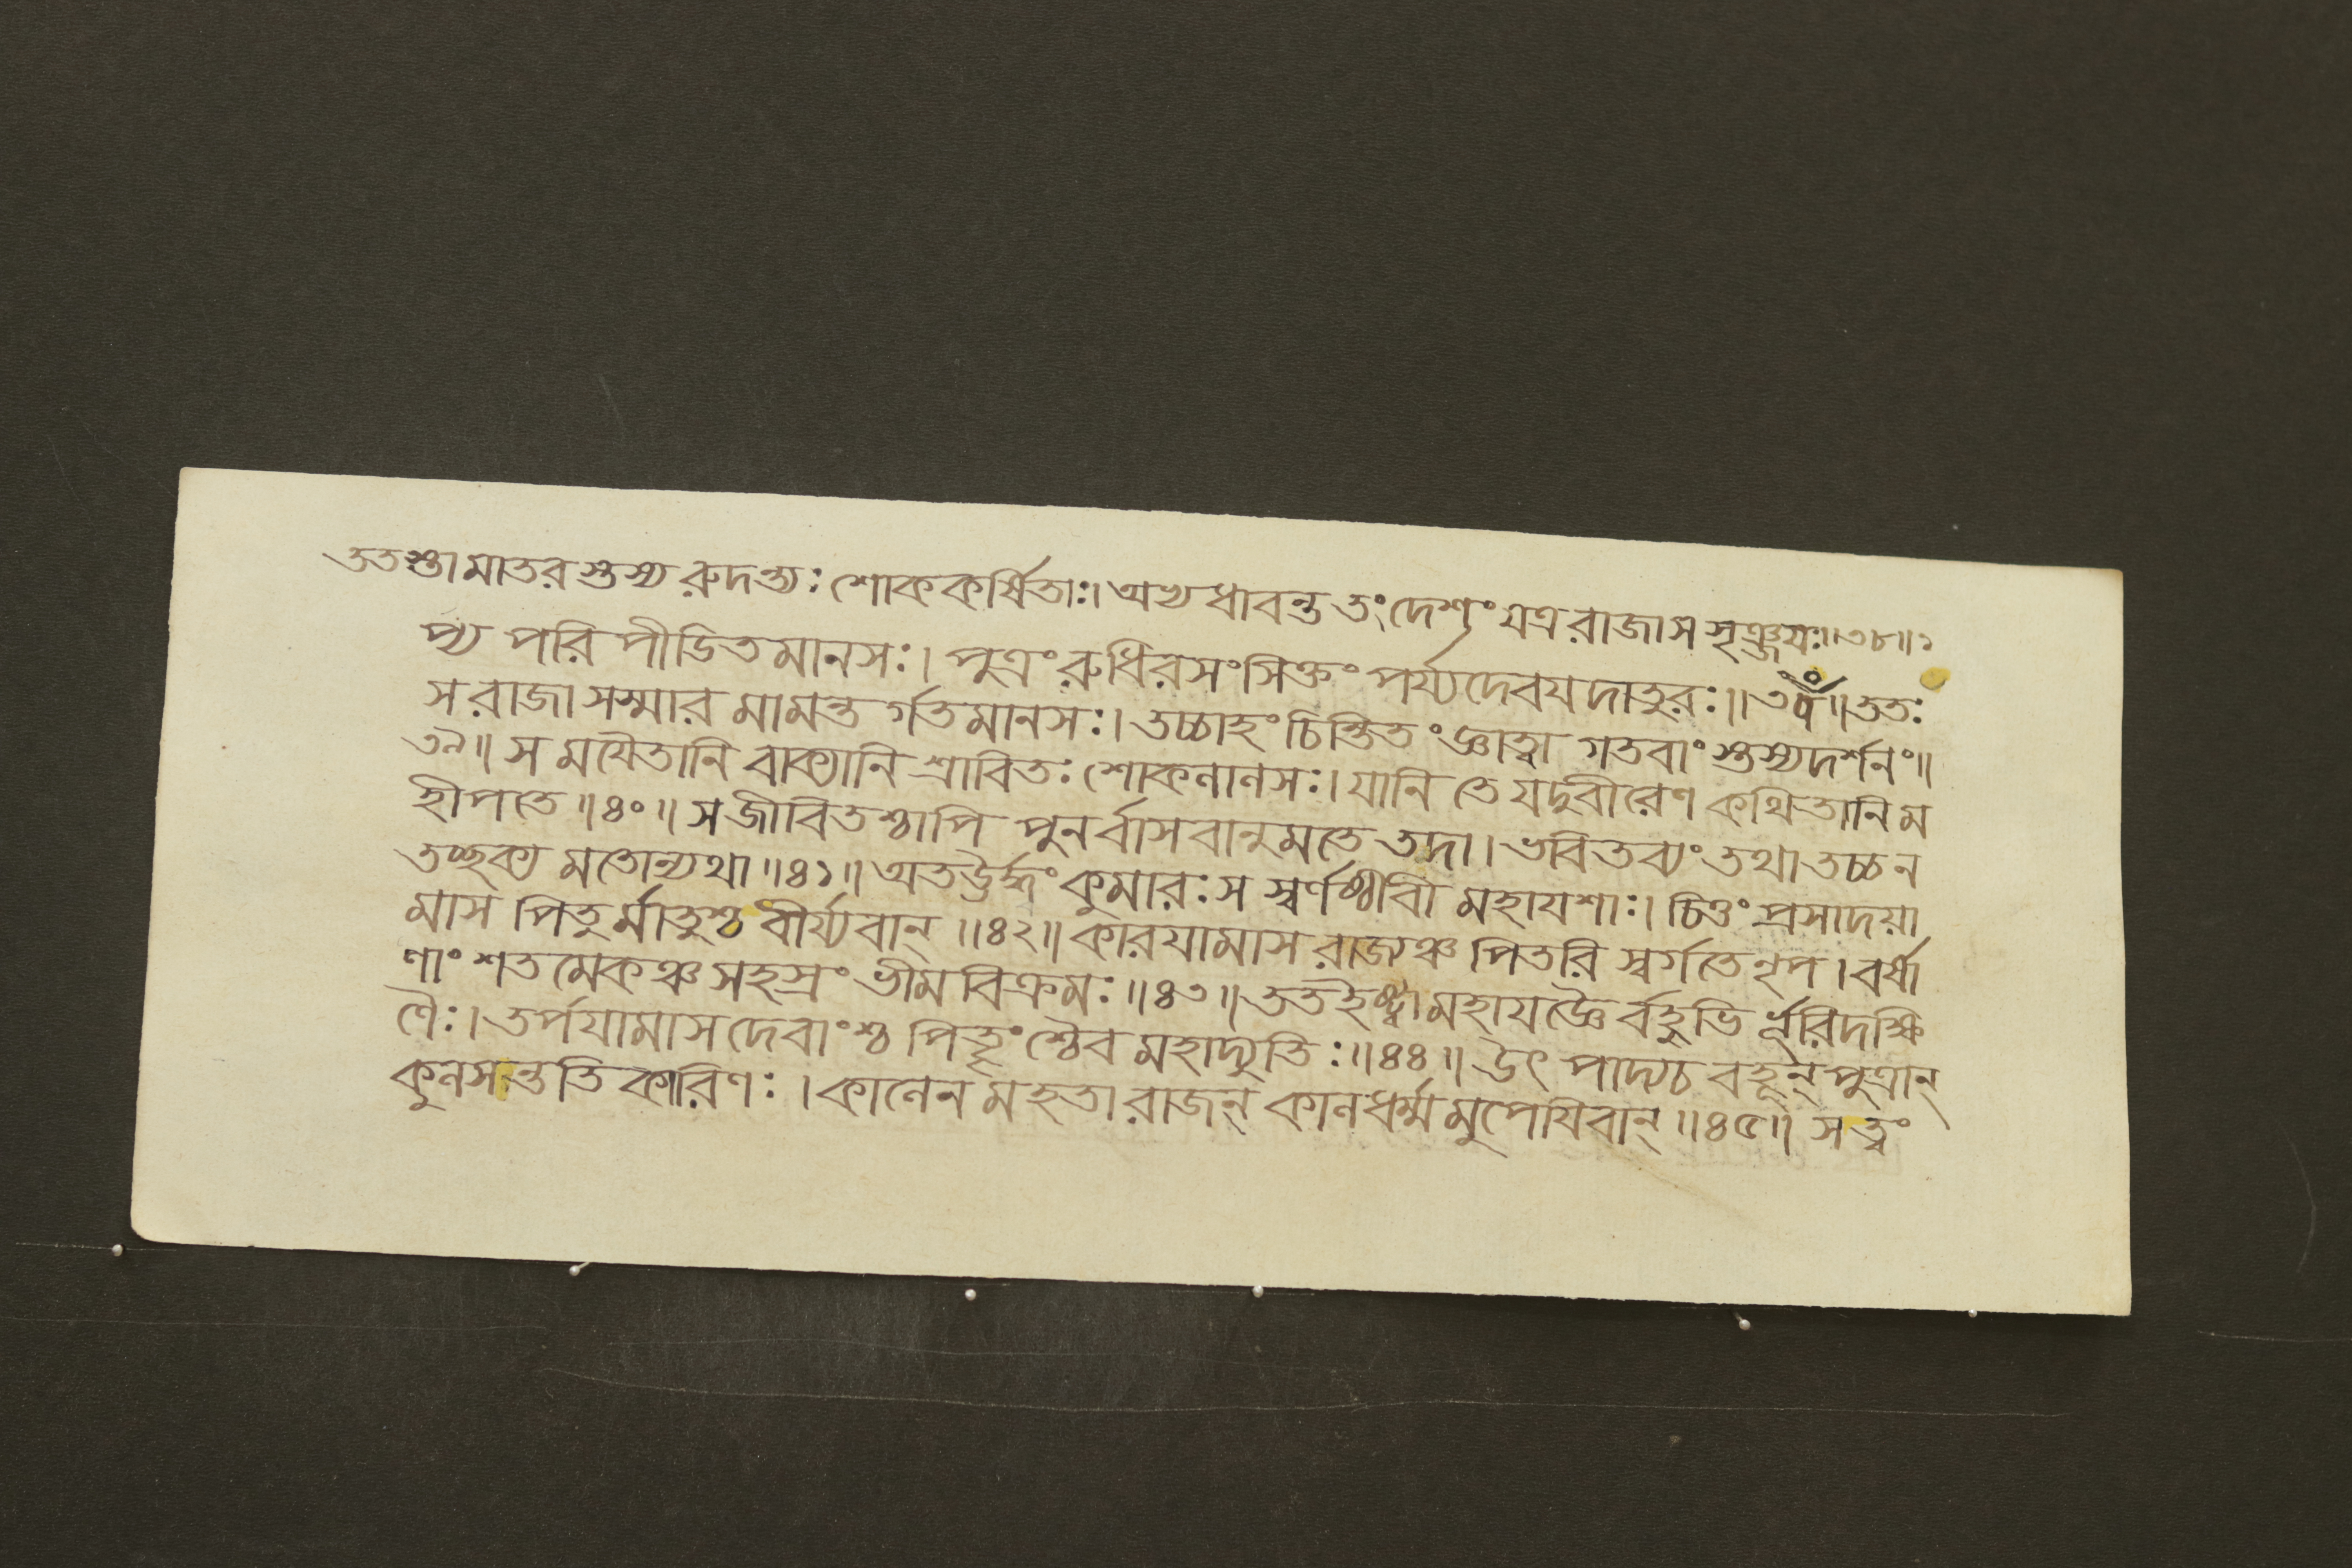 ততস্তা মাতরস্তস্য রুদন্ত্যঃ শোককর্ষিতাঃ। অভ্যধাবন্ত তং দেশং যত্র রাজা স সৃঞ্জযঃ॥৩৮॥১
প্য পরিপীডিতমানসঃ। পুত্রং রুধিরসংসিক্তং পর্য্যদেবযদাতুরঃ॥ ততঃ
স রাজা সস্মার মামন্তর্গতমানসঃ। তচ্চাহং চিন্তিতং জ্ঞাত্বা গতবাংস্তস্যদর্শনং॥
৩৯॥ স মযৈতানি বাক্যানি শ্রাবিতঃ শোকলালসঃ। যানি তে যদুবীরেণ কথিতানি ম
হীপতে॥৪০॥ সজীবিতশ্চাপি পুনর্বাসবানুমতে তদা। ভবিতব্যং তথা তচ্চ ন
তচ্ছক্য মতোন্যথা॥৪১॥ অতঊর্দ্ধং কুমারঃ স স্বর্ণষ্ঠীবী মহাযশাঃ। চিত্তং প্রসাদয়া
মাস পিতুর্মাতুশ্চ বীর্য্যবান্॥৪২॥ কারযামাস রাজ্যঞ্চ পিতরি স্বর্গতে নৃপ। বর্ষা
ণাং শতমেকঞ্চ সহস্রং ভীমবিক্রমঃ॥৪৩॥ ততইষ্ট্বা মহাযজ্ঞৈর্বহুভির্ভূরিদক্ষি
ণৈঃ। তর্পযামাস দেবাংশ্চ পিতৄংশ্চৈব মহাদ্যুতিঃ॥৪৪॥ উৎপাদ্যচ বহূন্ পুত্রান্
কুলসন্ততিকারিণঃ। কালেন মহতা রাজন্ কালধর্ম্মমুপেযিবান্॥৪৫॥ স ত্বং